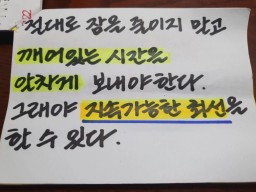 절대로 잠을 줄이지 말고
깨어있는 시간을
알차게 보내야 한다.
그래야 지속가능한 최선을
할 수 있다.